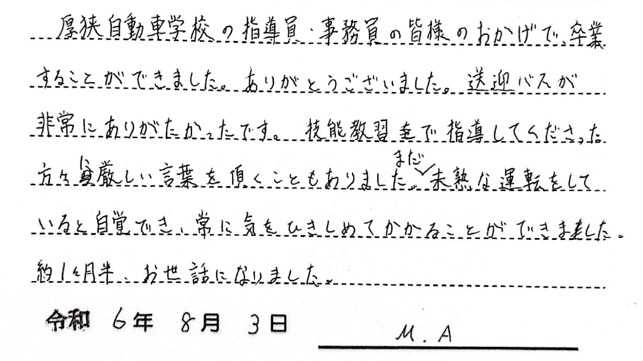 厚狭自動車学校の指導員・事務員の皆様のおかげで、卒業
することができました。ありがとうございました。送迎バスが
非常にありがたかったです。技能教習まで指導してくださった
方々に厳しい言葉を頂くこともありました。まだ未熟な運転をして
いると自覚でき、常に気をひきしめてかかることができました。
約1ヶ月半、お世話になりました。
令和 6年 8月 3日 M.A